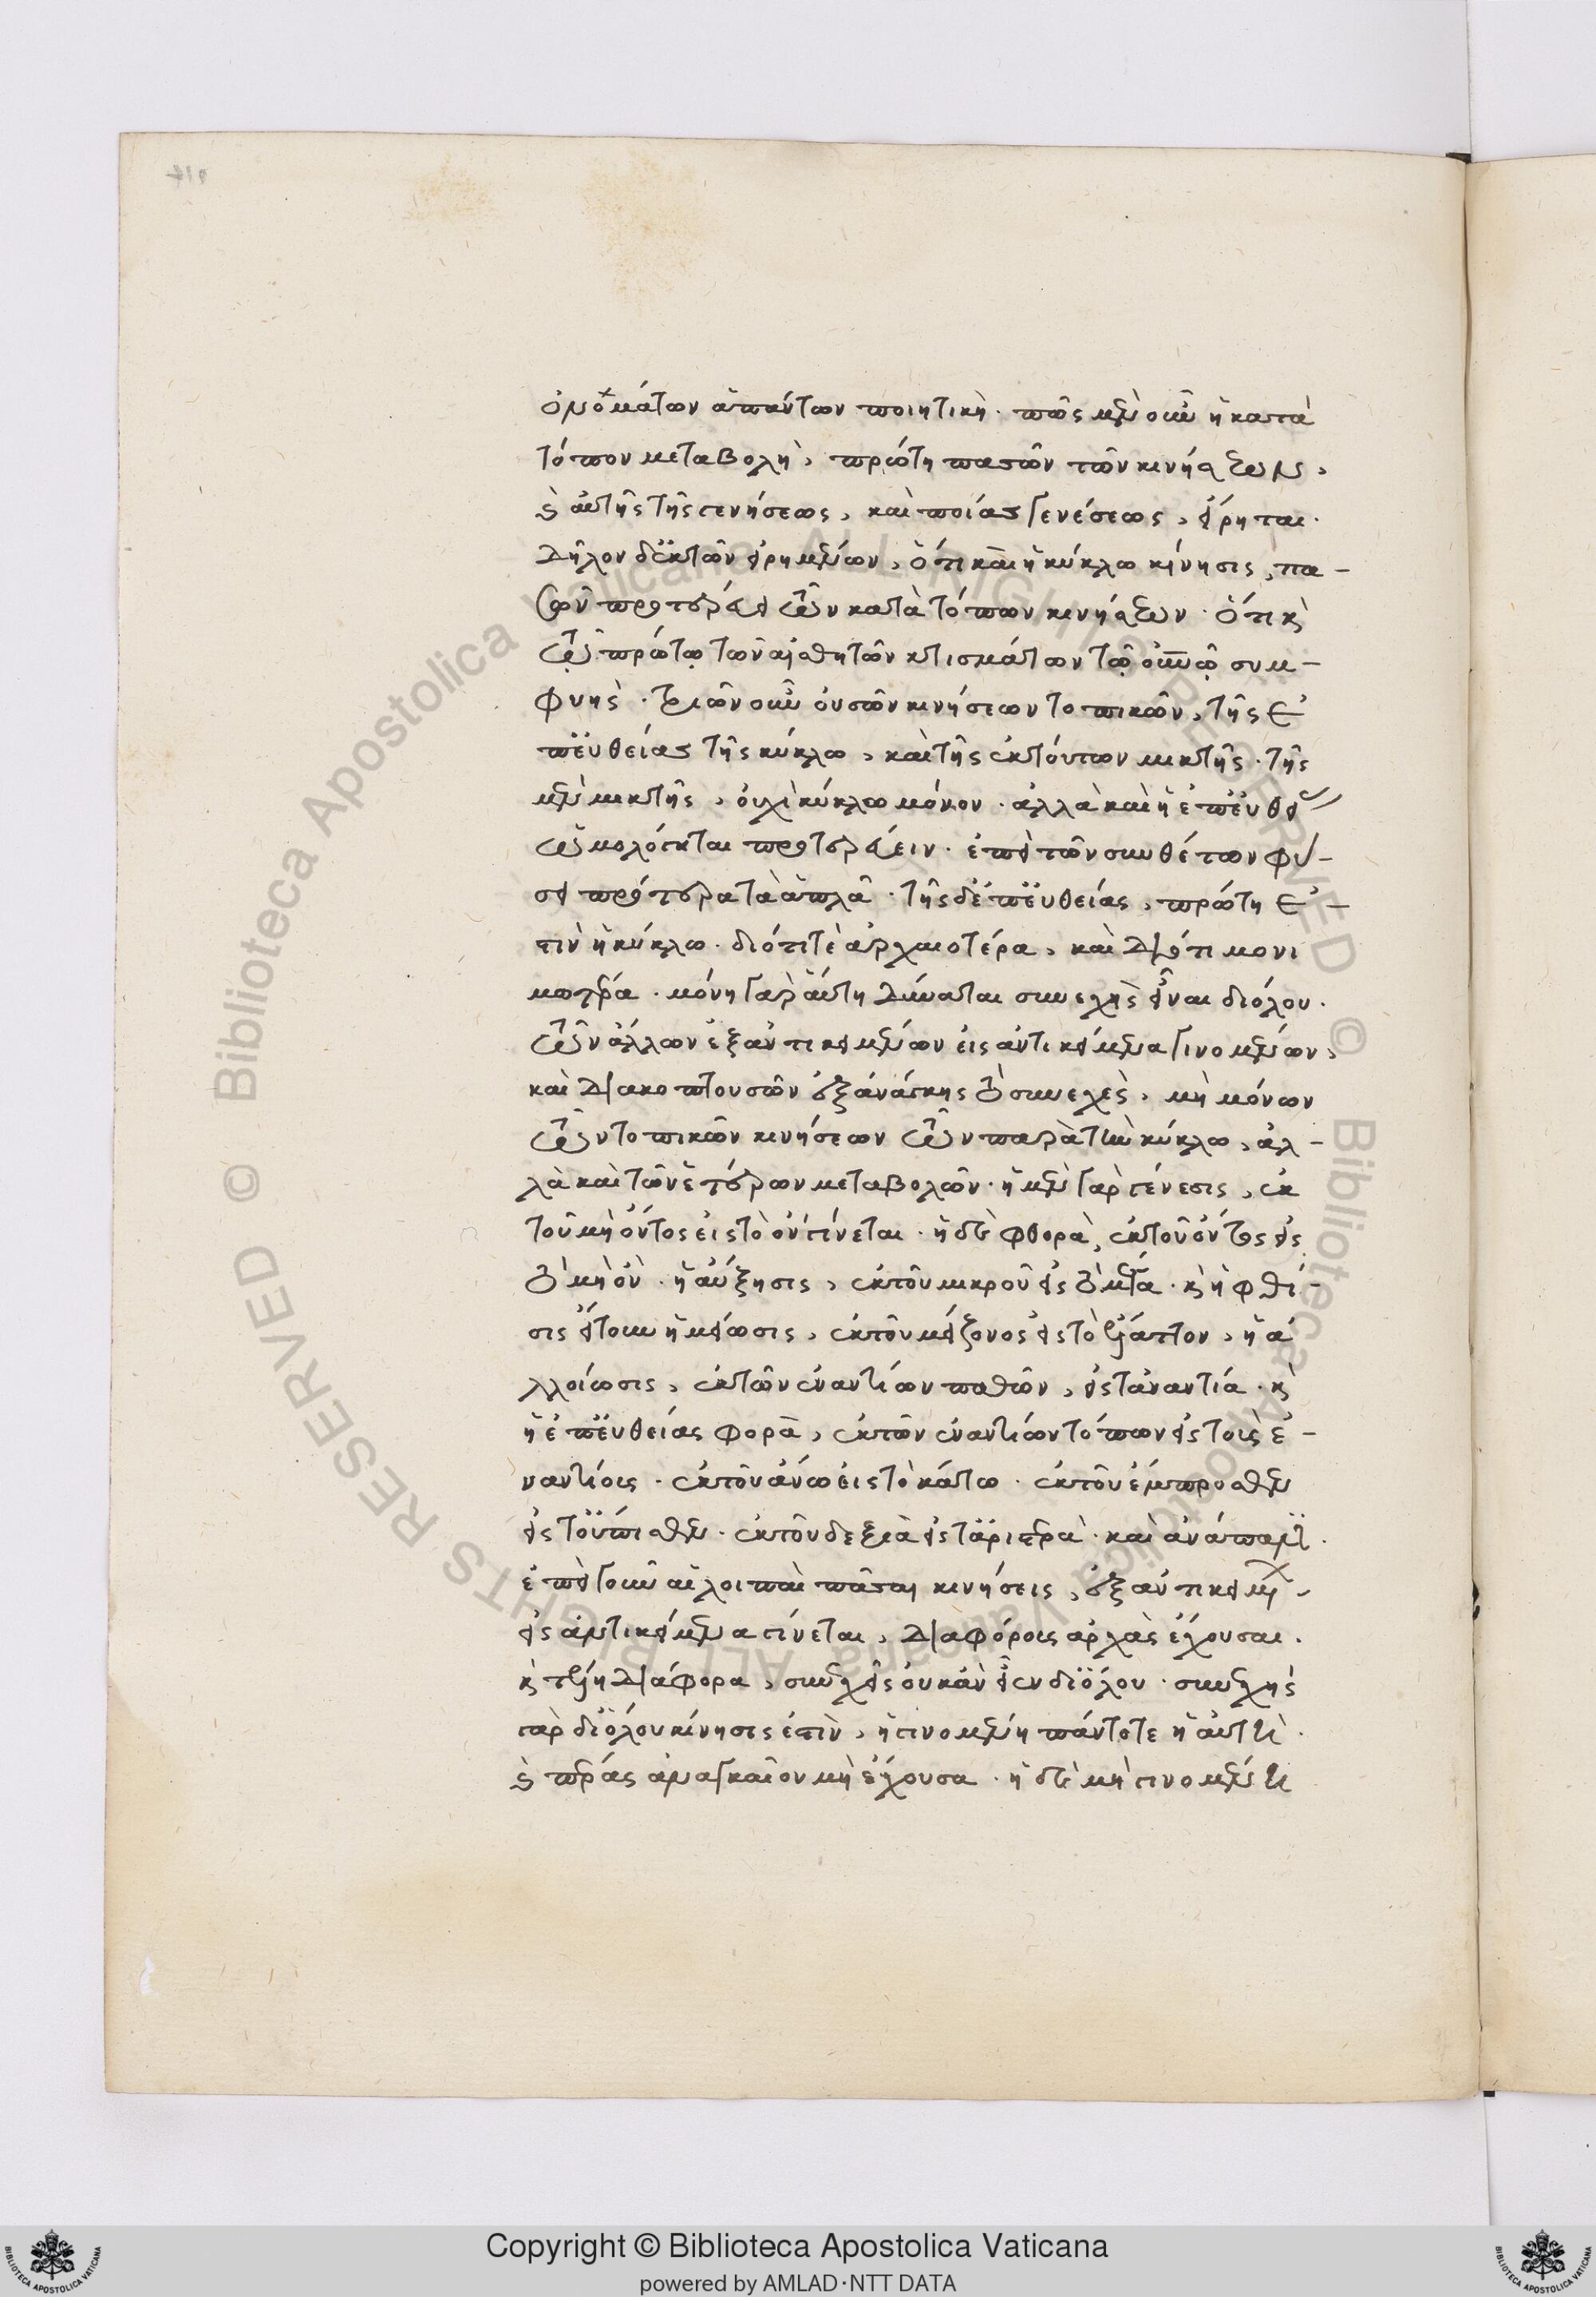 ὀνομάτων ἁπάντων ποιητικὴ. πῶς μὲν οὖν ἡ κατὰ
τόπον μεταβολὴ, πρώτη πασῶν τῶν κινήσεων,
καὶ αὐτῆς τῆς γενήσεως, καὶ ποίας γενέσεως, εἴρηται.
Δῆλον δ' ἐκ τῶν εἰρημένων, ὅτι καὶ ἡ κύκλω κίνησις, πα-
σῶν προτερεύει τῶν κατὰ τόπων κινήσεων. ὅτι καὶ
τῶ πρώτω τῶν αἰσθητῶν κτισμάτων τῶ οὐνῶ συμ-
φυὴς. τριῶν οὖν οὐσῶν κινήσεων τοπικῶν, τῆς ἐ
π' ευθείας τῆς κύκλω, καὶ τῆς ἐκ τούτων μικτῆς. τῆς
μὲν μικτῆς, οὐχὶ κύκλω μόνον. ἀλλὰ καὶ ἡ ἐπ' ευθείας
ὡμολόγηται προτερεύειν. ἐπεὶ τῶν συνθέτων φύ-
σει πρότερα τὰ ἁπλᾶ. τῆς δ' ἐπ' ευθείας, πρώτη ἐ-
στὶν ἡ κύκλω. διότι τὲ ἀρχαιοτέρα, καὶ διότι μονι
μωτέρα. μόνη γὰρ αὕτη δύναται συνεχὴς εἶναι διόλου.
τῶν ἄλλων ἐξ ἀντικειμένων εἰς ἀντικείμενα γινομένων,
καὶ διακοπτουσῶν ἐξ ἀνάγκης τὸ συνεχὲς, μὴ μόνων
τῶν τοπικῶν κινήσεων τῶν παρὰ τὴν κύκλω, ἀλ-
λὰ καὶ τῶν ἑτέρων μεταβολῶν. ἡ μὲν γὰρ γένεσις, ἐκ
τοῦ μὴ ὄντος εἰς τὸ ὂν γίνεται. ἡ δὲ φθορὰ, ἐκ τοῦ ὄντος εἰς
τὸ μὴ ὂν. ἡ αὔξησις, ἐκ τοῦ μικροῦ εἰς τὸ μέγα. καὶ ἡ φθί-
σις εἴτουν ἡ μείωσις, ἐκ τοῦ μείζονος εἰς τὸ ἔλαττον, ἡ ἀ
λλοίωσις, ἐκ τῶν ἐναντίων παθῶν, εἰς τἀναντία. καὶ
ἡ ἐπ' ευθείας φορὰ, ἐκ τῶν ἐναντίων τόπων εἰς τοὶς ἐ-
ναντίοις. ἐκ τοῦ ἄνω εἰς τὸ κάτω. ἐκ τοῦ ἔμπροσθεν
εἰς τοὔπισθεν. ἐκ τοῦ δεξιὰ εἰς τἀριστερὰ. καὶ ἀνάπαλιν.
ἐπεὶ γοῦν αἱ λοιπαὶ πᾶσαι κινήσεις, ἐξ ἀντικειμένων
εἰς ἀντικείμενα γίνεται, διαφόροις ἀρχὰς ἔχουσαι.
καὶ τέλη διάφορα, συνεχεῖς οὐκ ἂν εἶεν διόλου. συνεχὴς
γὰρ διόλου κίνησις ἐστὶν, ἡ γινομένη πάντοτε ἡ αὐτὴ.
καὶ πέρας ἀναγκαῖον μὴ ἔχουσα. ἡ δὲ μὴ γινομένη